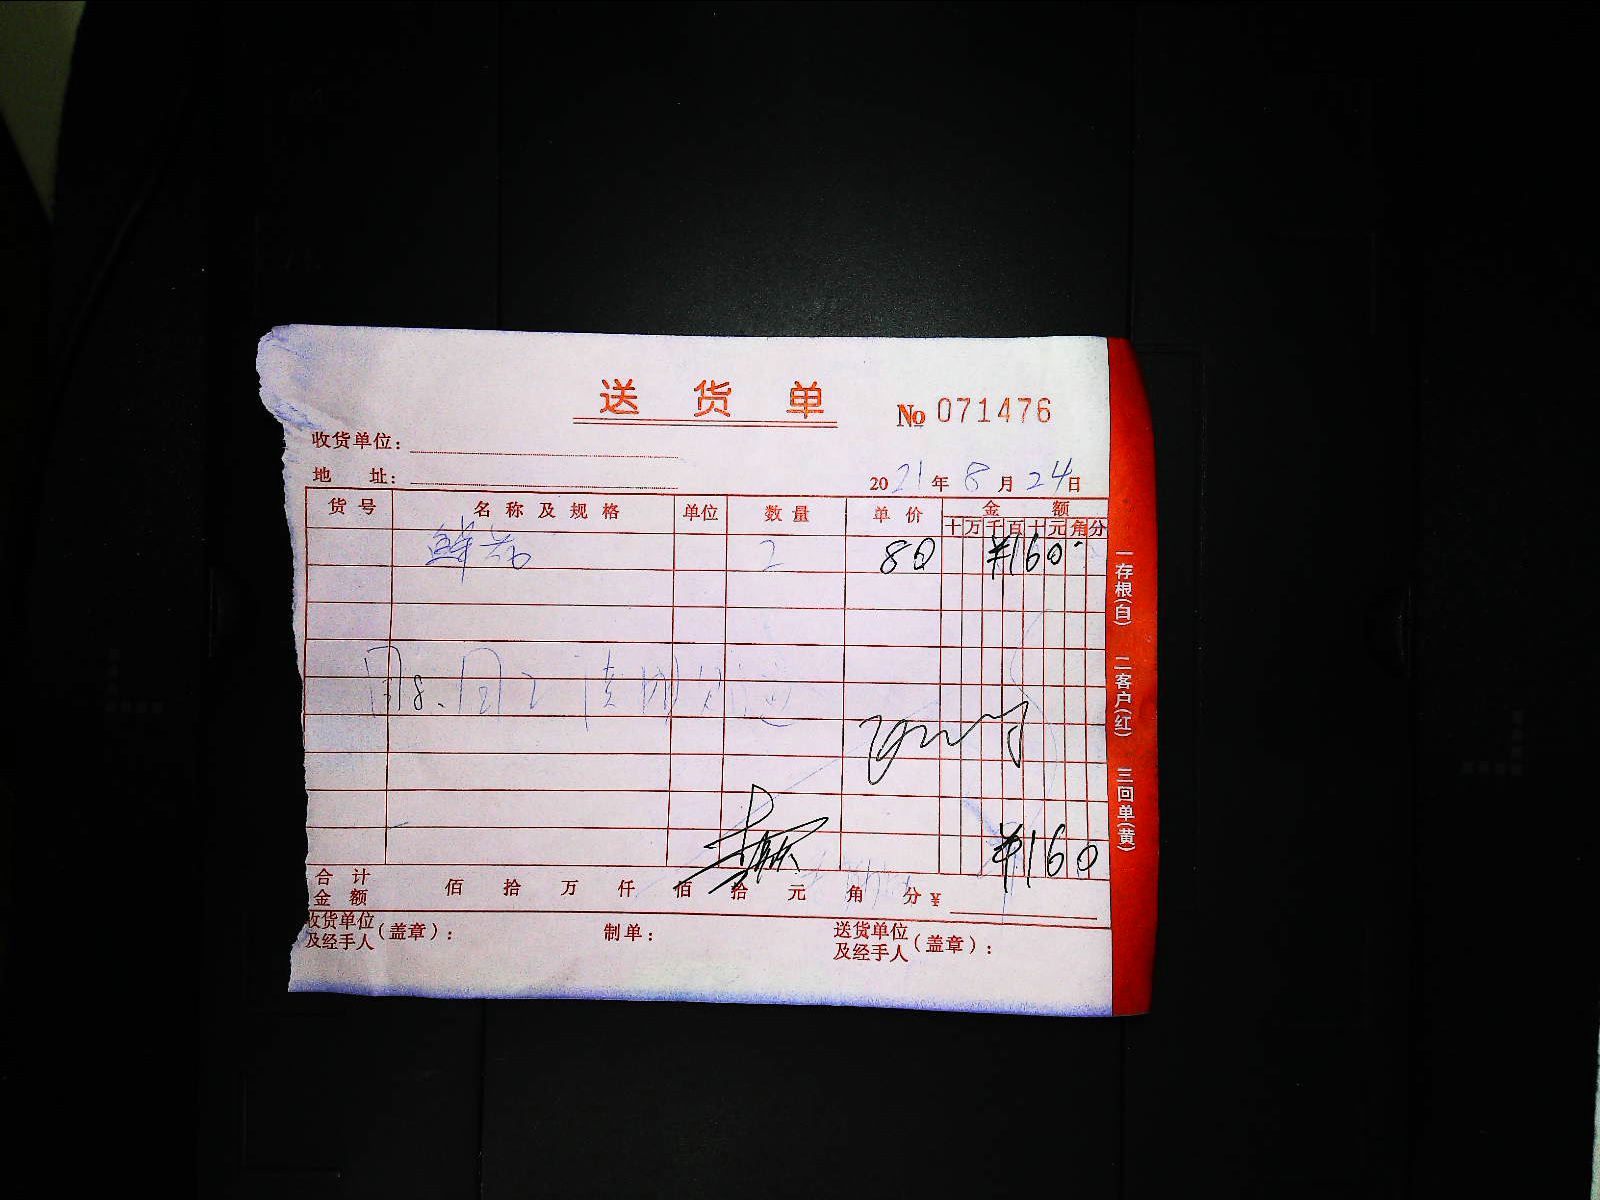 送货单
No 071476
收货单位:
地 址:
2021年8月24日
货号 名称及规格 单位 数量 单价 金额
十 万 千 百 十 元 角 分
鲜花 2 80 ¥160
¥160
合计金额 佰 拾 万 仟 佰 拾 元 角 分 ¥
收货单位及经手人(盖章): 制单: 送货单位及经手人(盖章):
一存根(白) 二客户(红) 三回单(黄)